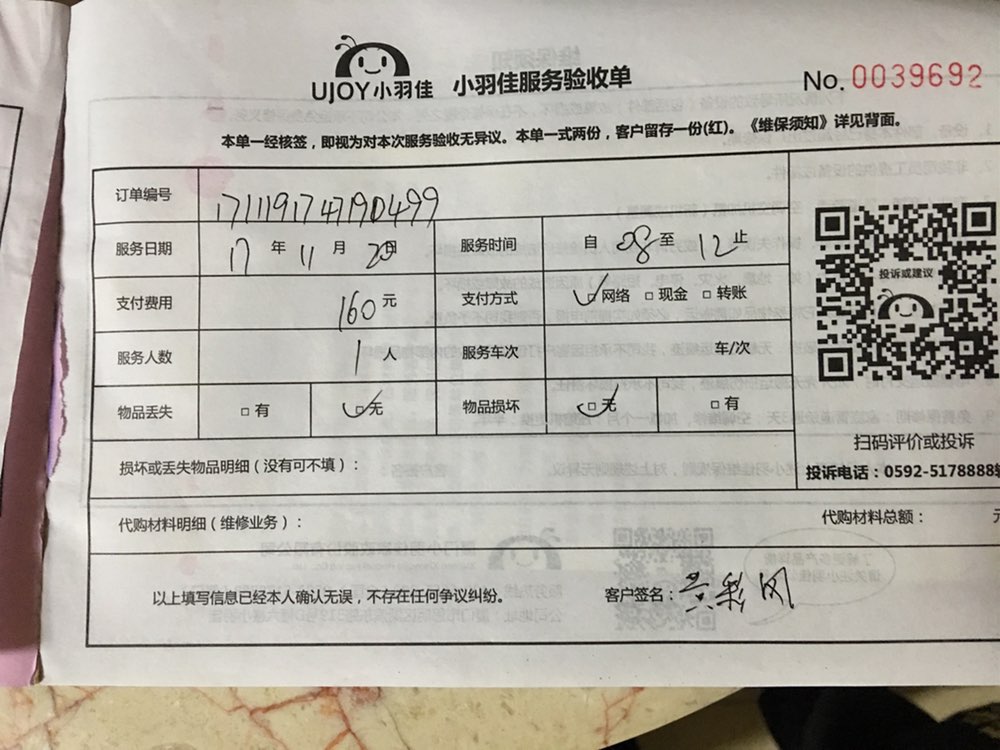 UJOY小羽佳 小羽佳服务验收单 No. 0039692
本单一经核签，即视为对本次服务验收无异议。本单一式两份，客户留存一份(红)。《维保须知》详见背面。
订单编号 171119174790499
服务日期 17 年 11 月 20日 服务时间 自 08 至 12 止
投诉或建议
支付费用 160 元 支付方式 网络 □ 现金 □ 转账
服务人数 1 人 服务车次 车/次
物品丢失 □ 有 □ 无 物品损坏 □ 无 □ 有
扫码评价或投诉
损坏或丢失物品明细（没有可不填）：
投诉电话：0592-5178888转
代购材料明细（维修业务）： 代购材料总额： 元
以上填写信息已经本人确认无误，不存在任何争议纠纷。 客户签名：黄彩凤